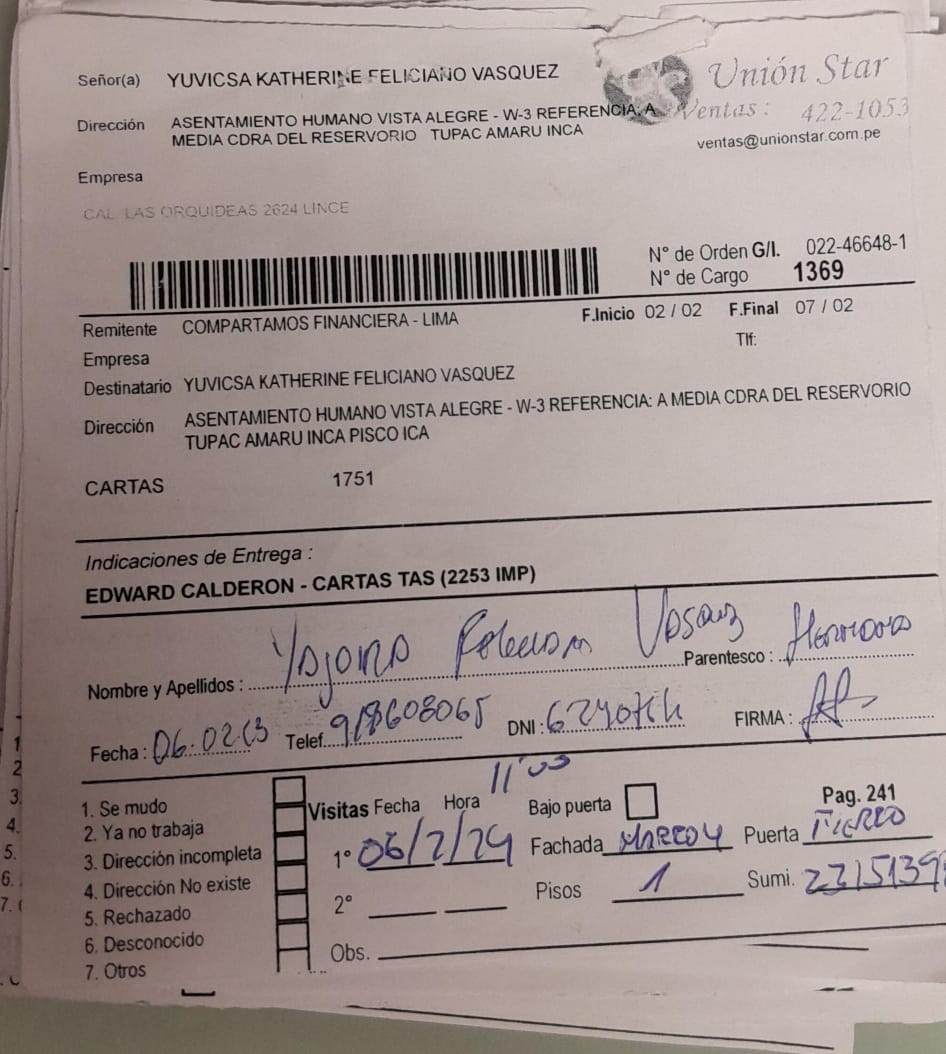 Señor(a) YUVICSA KATHERINE FELICIANO VASQUEZ
Unión Star
Dirección ASENTAMIENTO HUMANO VISTA ALEGRE - W-3 REFERENCIA: A
MEDIA CDRA DEL RESERVORIO TUPAC AMARU INCA
Ventas: 422-1053
ventas@unionstar.com.pe
Empresa
CAL. LAS ORQUIDEAS 2624 LINCE
N° de Orden G/I. 022-46648-1
N° de Cargo 1369
Remitente COMPARTAMOS FINANCIERA - LIMA
F.Inicio 02 / 02 F.Final 07 / 02
Empresa
Tlf:
Destinatario YUVICSA KATHERINE FELICIANO VASQUEZ
Dirección ASENTAMIENTO HUMANO VISTA ALEGRE - W-3 REFERENCIA: A MEDIA CDRA DEL RESERVORIO
TUPAC AMARU INCA PISCO ICA
CARTAS 1751
Indicaciones de Entrega :
EDWARD CALDERON - CARTAS TAS (2253 IMP)
Nombre y Apellidos : Parentesco :
Fecha : Telef. 918608065 DNI : FIRMA :
1. Se mudo
2. Ya no trabaja
3. Dirección incompleta
4. Dirección No existe
5. Rechazado
6. Desconocido
7. Otros
Visitas Fecha Hora 11:00 Bajo puerta Pag. 241
1° 06/2/24 Fachada Puerta
2° Pisos 1 Sumi.
Obs.
1
2
3.
4.
5.
6.
7.